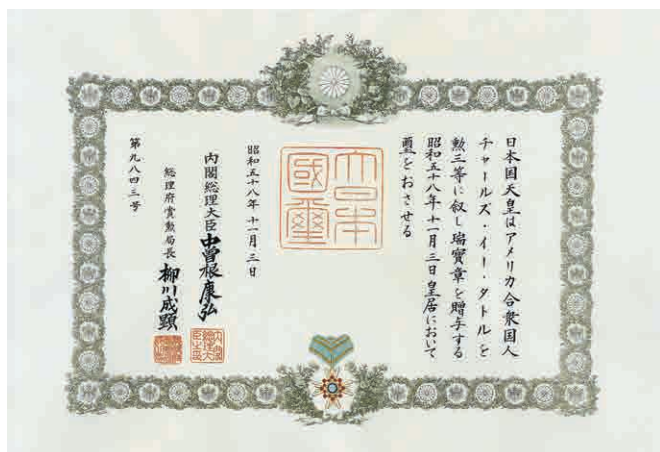 日本国天皇はアメリカ合衆国人
チャールズ・イー・タトルを
勲三等に叙し瑞寳章を贈与する
昭和五十八年十一月三日皇居において
璽をおさせる
大日本國璽
昭和五十八年十一月三日
内閣総理大臣中曽根康弘
総理府賞勲局長 柳川成顕
第九八四三号